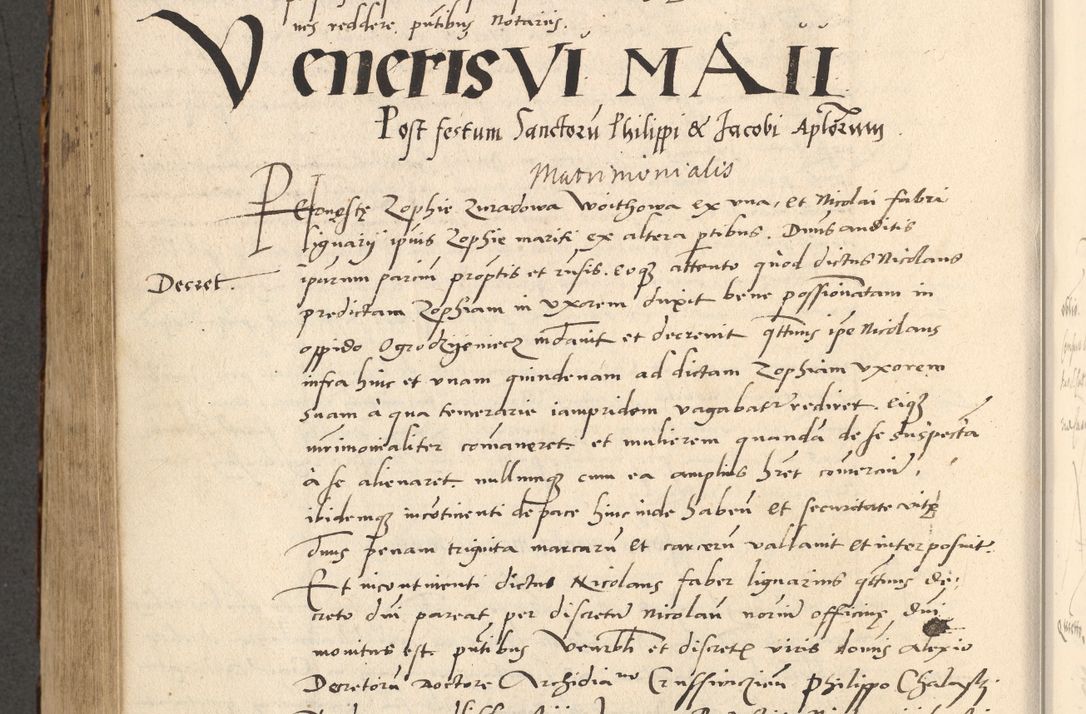 nes reddere, pñtibus Notariis.
Veneris VI MAII
Post festum Sanctorũ Philippi & Jacobi Aplorum
Matrimonialis
Honestę Zophie Zuradowa Woithowa ex vna, et Nicolai fabri
lignarij ipius Zophie mariti ex altera ptibus. Dnus auditis
Decret.
ipsarum parciũ proptis et rñsis. eoq3 attento quod dictus Nicolaus
predictam Zophiam in vxorem duxit bene possionatam in
oppido Ogrodzyeniecz mdauit et decreuit qtenus ipe Nicolaus
infra hinc et vnam quindenam ad dictam Zophiam vxorem
suam a qua temerarie iampridem vagabatur rediret. eiq3
mrimonialiter comaneret. et mulierem quandã de se suspectã
à se alienaret. nullumq3 cum ea amplius hret comerciũ,
ibidemq3 incõtinenti de pace hinc inde habeñ et securitate
dnus penam triginta marcarũ et carcerũ vallauit et interposuit.
Et incontinenti dictus Nicolaus faber lignarius qtenus de-
creto dni pareat, per discretũ Nicolaũ noriũ officinę dni
monitus est. pñtibus Venrbli et discretis viris domis Alexio
Decretorũ doctore Archidiano Crusswicieñ Philippo